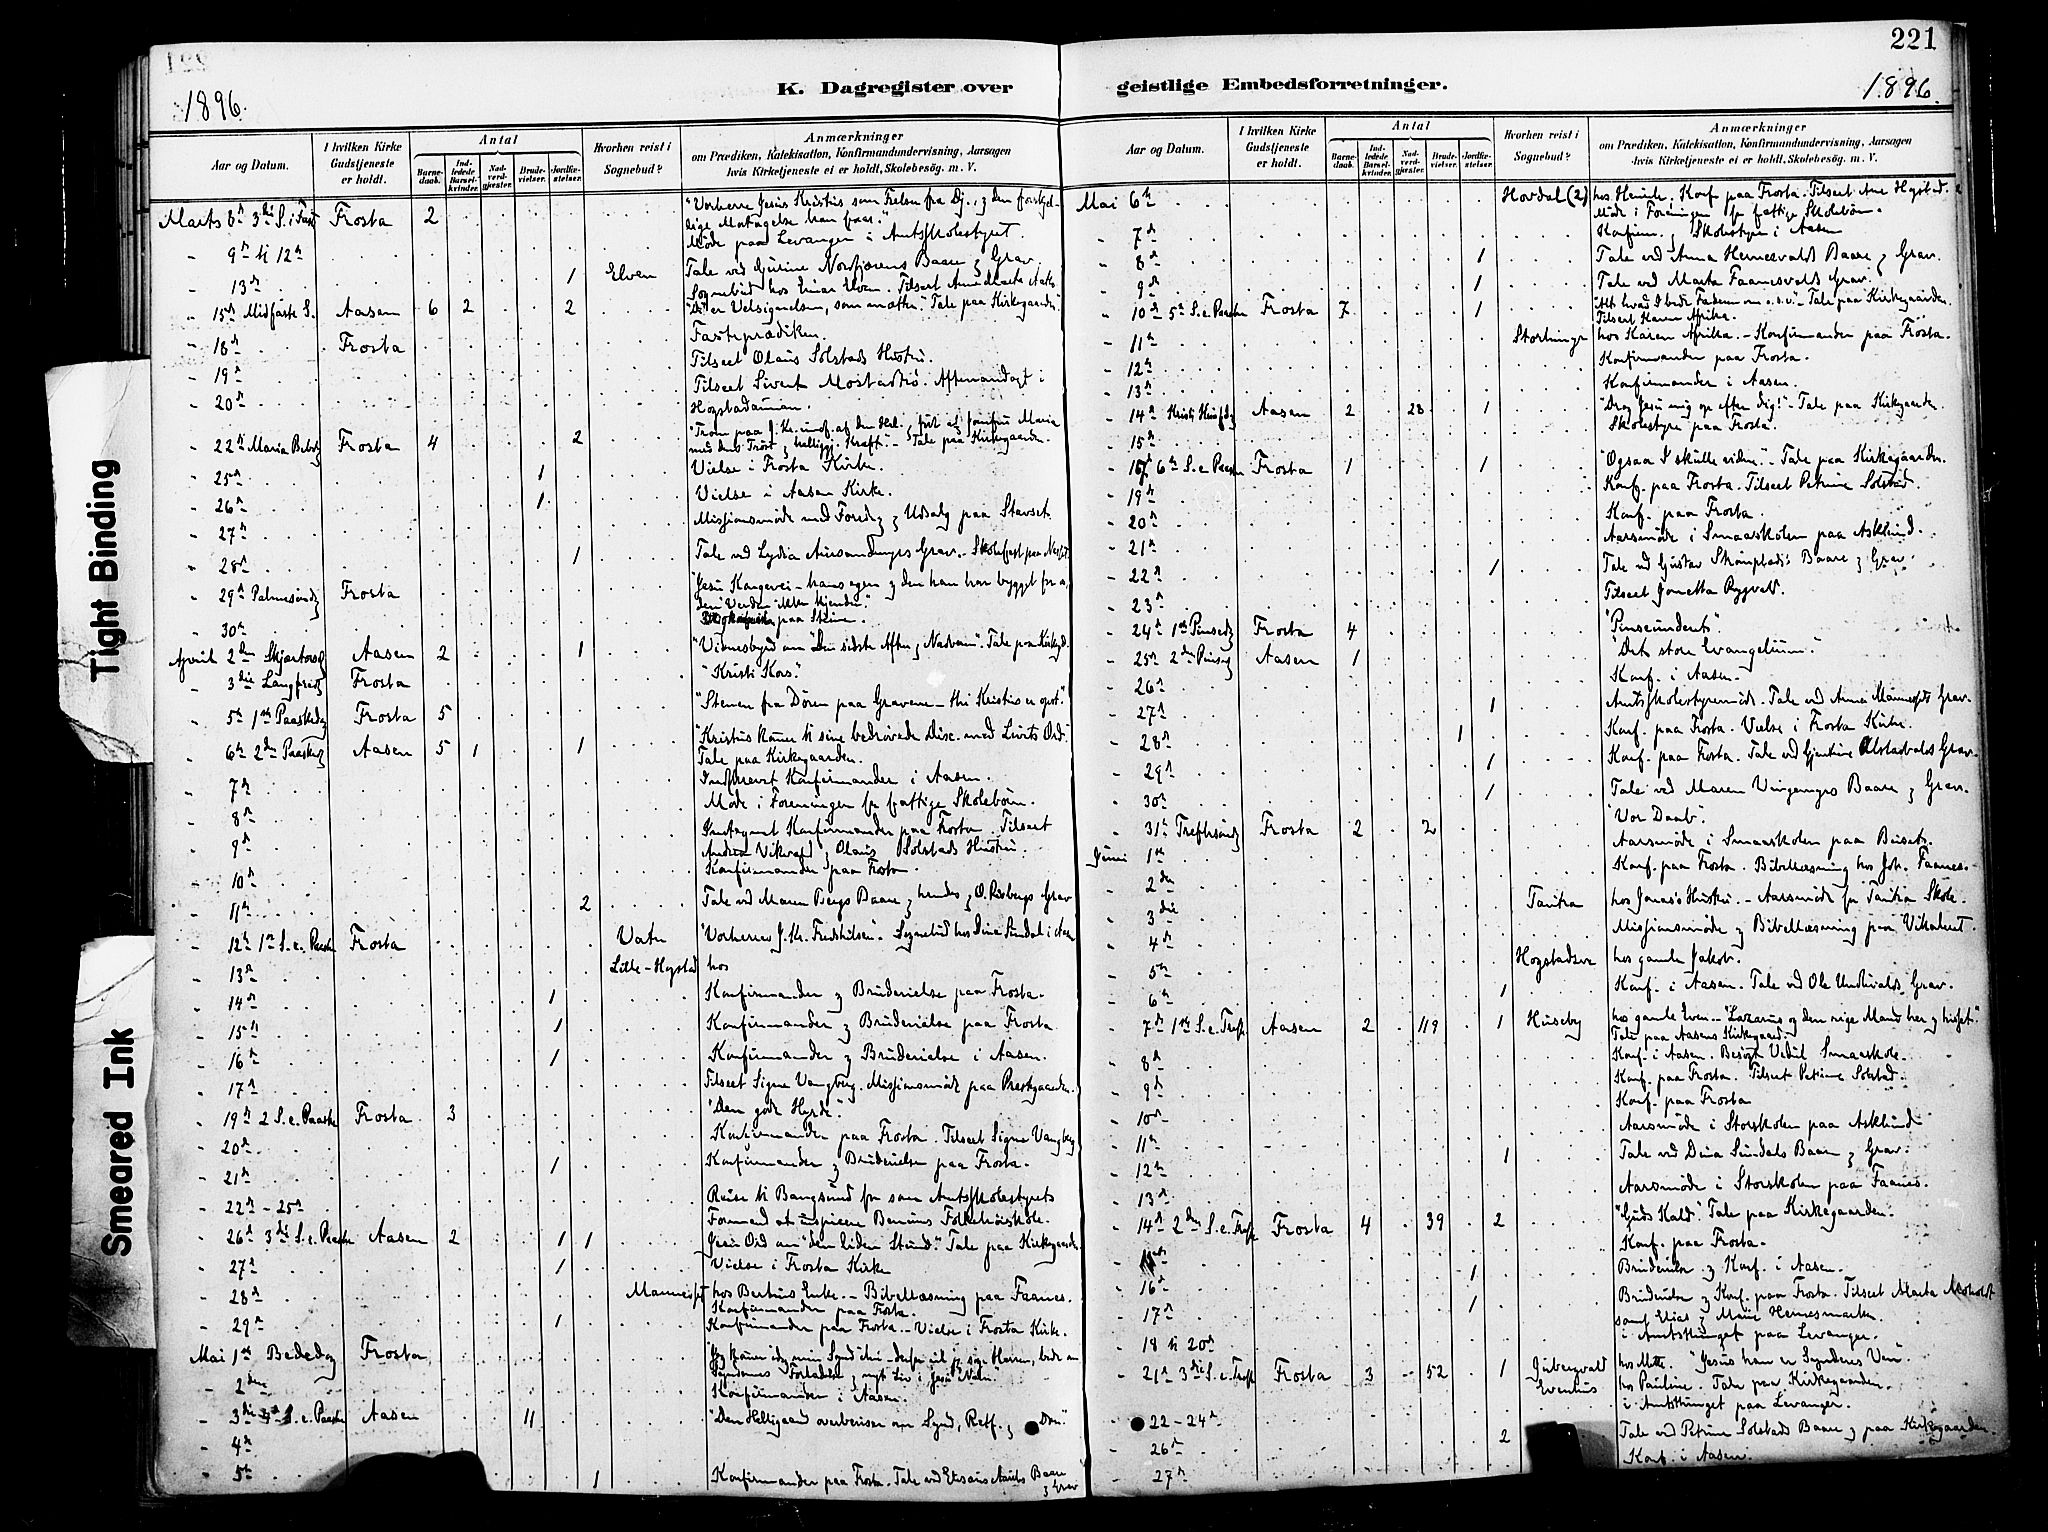 221
K. Dagregister over geistlige Embedsforretninger.
1896.
1896.
Tight Binding
Smeared Ink
Aar og Datum.
I hvilken Kirke Gudstjeneste er holdt.
Antal
Barnedaab.
Indledede Barselkvinder.
Nadverdgjester.
Brudevielser.
Jordfæstelser.
Hvorhen reist i Sognebud?
Anmærkninger
om Prædiken, Katekisation, Konfirmandundervisning, Aarsagen
hvis Kirketjeneste ei er holdt, Skolebesøg. m. V.
Marts 8de 3die S. i Fast Frosta 2 "Vorherre Jesus Kristus som Frelser fra Dj., og den forskjel-
lige Modtagelse han faar."
- 9de til 12te Møde paa Levanger i Amtsskolestyret.
- 13de 1 Elven Tale ved Baare og Grav.
Sognebud hos Einar Elven. Tilseet
- 15de Midfaste S. Aasen 6 2 2 Tale paa Kirkegaarden
- 18de Frosta Fasteprædiken.
- 19de Tilseet Olaus Solstads Hustru.
- 20de Tilseet Sivert Aftenandagt i
- 22de Maria Bebdg Frosta 4 2 Tale paa Kirkegaarden.
- 25de 1 Vielse i Frosta Kirke.
- 26de 1 Vielse i Aasen Kirke.
- 27de Missionsmøde med Foredg og Udsalg paa Stavset.
- 28de 1 Tale ved Lydia Grav. - Skolefest paa
- 29de Palmesøndg Frosta "Jesu Kongevei - hans egen og den han har bygget for os,
- 30te
April 2den Skjærtorsdg Aasen 2 1 "Vidnesbyrd om Den sidste Aften og Nadveren". Tale paa Kirkegd.
- 3die Langfredg Frosta "Kristi Kors."
- 5te 1ste Paaskedg Frosta 5 "Stenen fra Døren paa Graven - thi Kristus er opst."
- 6te 2den Paaskedg Aasen 5 1 1 "Kristus kommer til sine bedrøvede Disc. med Livets Ord."
Tale paa Kirkegaarden.
- 7de Indskrevet Konfirmander i Aasen.
- 8de Møde i Foreningen for fattige Skolebørn.
- 9de Konfirmander paa Frosta. Tilseet
Andrea og Olaus Solstads Hustru.
- 10de Konfirmander paa Frosta.
- 11te 2 Tale ved Maren Bergs Baare og hendes og O. Grav
- 12te 1ste S. e. Paaske Frosta Vatn "Vorherres J. Kr. Fredshilsen". Sognebud hos Dina Sundal i Aasen
- 13de Litle-Hogstad hos
- 14de 1 Konfirmander og Brudevielse paa Frosta.
- 15de 1 Konfirmander og Brudevielse paa Frosta
- 16de 1 Konfirmander og Brudevielse i Aasen.
- 17de Tilseet Signe Vangberg. Missionsmøde paa Præstgaarden.
- 19de 2 S. e. Paaske Frosta 3 "Den gode Hyrde".
- 20de Konfirmander paa Frosta. Tilseet Signe Vangberg
- 21de 1 Konfirmander og Brudevielse paa Frosta.
- 22de - 25de Reise til Bangsund for som Amtsskolestyrets
Formand at inspicere Folkehøiskole.
- 26de 3die S. e. Paaske Aasen 2 1 1 Jesu Ord om "den liden Stund". Tale paa Kirkegaarden
- 27de 1 Vielse i Frosta Kirke
- 28de hos Enke. - Bibellæsning paa Faanes.
Konfirmander paa Frosta.
- 29de 1 Konfirmander paa Frosta. - Vielse i Frosta Kirke.
Mai 1ste Bededag Frosta
- 2den Konfirmander i Aasen.
- 3die 4de S. e. Paaske Aasen 11 "Den Helligaand overbeviser om Synd, Retf. og Dom."
- 4de
- 5te 1 Konfirmander paa Frosta. Tale ved Baare
og Grav
Mai 6te Hovdal (2) Konf. paa Frosta. Tilseet Ane Hogstad.
Møde i Foreningen for fattige Skolebørn.
- 7de Konfirm. og Skolestyre i Aasen
- 8de 1 Tale ved Anna Baare og Grav.
- 9de 1 Tale ved Marta Faanesvalds Grav.
- 10de 5te S. e. Paaske Frosta 7 1 "Alt hvad I bede Faderen om o.s.v." - Tale paa Kirkegaarden.
Tilseet Karen Afrika.
- 11te hos Karen Afrika. - Konfirmander paa Frosta.
- 12te Konfirmander paa Frosta.
- 13de Konfirmander i Aasen.
- 14de Kristi Himfdg Aasen 2 28 1 "Drag Jesu mig op efter dig!" - Tale paa Kirkegaarden.
- 15de Skolestyre paa Frosta.
- 17de 6te S. e. Paaske Frosta 1 1 "Ogsaa I skulle vidne". - Tale paa Kirkegaarden.
- 19de Konf. paa Frosta. Tilseet Petrine Solstad.
- 20de Konf. paa Frosta.
- 21de Aarsmøde i Smaaskolen paa Asklund.
- 22de 1 Tale ved Gustav Baare og Grav.
- 23de Tilseet Jonetta
- 24de 1ste Pinsedg Frosta 4 "Pinseunderet".
- 25de 2den Pinsedg Aasen 1 "Det store Evangelium".
- 26de Konf. i Aasen.
- 27de 1 Amtsskolestyremøde. Tale ved Anna Grav.
- 28de 1 Konf. paa Frosta. Vielse i Frosta Kirke.
- 29de 1 Konf. paa Frosta. Tale ved Grav.
- 30te 1 Tale ved Maren Baare og Grav.
- 31te Trefsøndg Frosta 2 2 "Vor Daab".
Juni 1ste Aarsmøde i Smaaskolen paa
- 2den Konf. paa Frosta. Bibellæsning hos Joh. Faanes.
- 3die Tautra hos Jonas's Hustru. - Aarsmøde for Tautra Skole.
- 4de Missionsmøde og Bibellæsning paa
- 5te hos gamle Jakob.
- 6te 1 Konf. i Aasen. Tale ved Ole Grav.
- 7de 1ste S. e. Tref. Aasen 2 119 1 Huseby hos gamle Even. - "Lazarus og den rige Mand her og hisset."
Tale paa Aasens Kirkegaard.
- 8de Konf. i Aasen. Besøgt Vedul Smaaskole.
- 9de Konf. paa Frosta. Tilseet Petrine Solstad.
- 10de Konf. paa Frosta
- 11te Aarsmøde i Storskolen paa Asklund
- 12te 1 Tale ved Dina Sundals Baare og Grav.
- 13de Aarsmøde i Storskolen paa Faanes.
- 14de 2den S. e. Tref. Frosta 4 39 2 "Guds Kald". Tale paa Kirkegaarden.
Konf. paa Frosta.
- 16de 1 Brudevielse og Konf. i Aasen.
- 17de 1 Brudevielse og Konf. paa Frosta. Tilseet Marta
samt Elias og
- 18 til 20de i Amtsthinget paa Levanger.
- 21de 3die S. e. Tref. Frosta 3 52 1 hos Mette. "Jesus han er Synderes Ven".
Evenhus hos Pauline. Tale paa Kirkegaarden.
- 22 - 24de i Amtsthinget paa Levanger.
- 26de 2 Tale ved Petrine Solstads Baare og paa Kirkegaarden.
- 27de Konf. i Aasen.